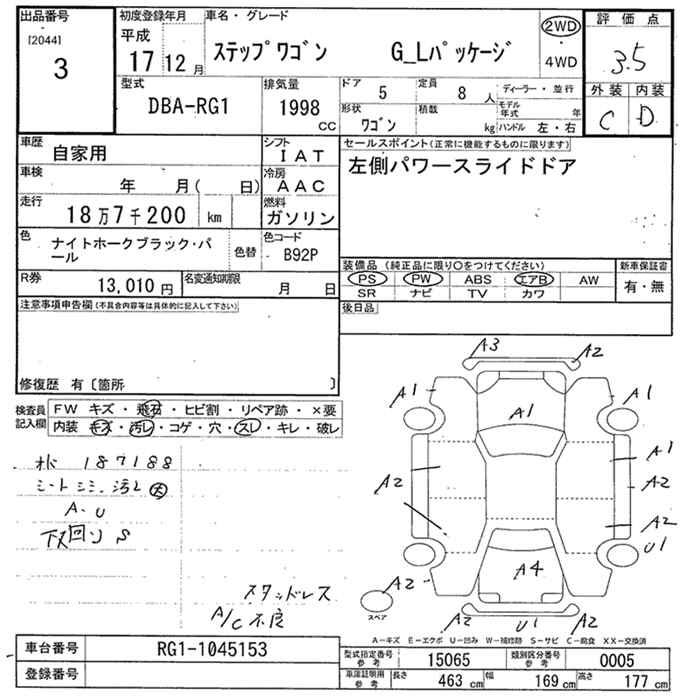 出品番号 初度登録年月 車名・グレード 評価点
[2044] 平成 2WD
3 17 12月 ステップワゴン G_Lパッケージ ・ 3.5
4WD
型式 排気量 ドア 5 定員 8人 ディーラー・並行 外装 内装
DBA-RG1 1998 cc 形状 ワゴン 積載 kg モデル年式 年 C D
ハンドル 左・右
車歴 自家用 シフト IAT セールスポイント(正常に機能するものに限ります)
車検 年 月( 日) 冷房 AAC 左側パワースライドドア
走行 18万7千200 km 燃料 ガソリン
色 ナイトホークブラック・パール 色替 色コード B92P
装備品(純正品に限り○をつけてください) 新車保証書
R券 13,010円 名変通知期限 月 日 PS PW ABS エアB AW 有・無
SR ナビ TV カワ
注意事項申告欄(不具合内容等は具体的に記入して下さい) 後日品
修復歴 有〔箇所 〕
検査員記入欄 FW キズ・飛石・ヒビ割・リペア跡・×要
内装 キズ・汚レ・コゲ・穴・スレ・キレ・破レ
A3 A2
A1 A1 A1
187188 A1
シートシミ汚レ 大 A2 A2
A・U A2
下回り S U1
A4
スタッドレス A2
A/C不良 スペア A2 U1 A2
A-キズ E-エクボ U-凹み W-補修跡 S-サビ C-腐食 XX-交換済
車台番号 RG1-1045153 型式指定番号参考 15065 類別区分番号参考 0005
登録番号 車庫証明用参考 長さ 463cm 幅 169cm 高さ 177cm